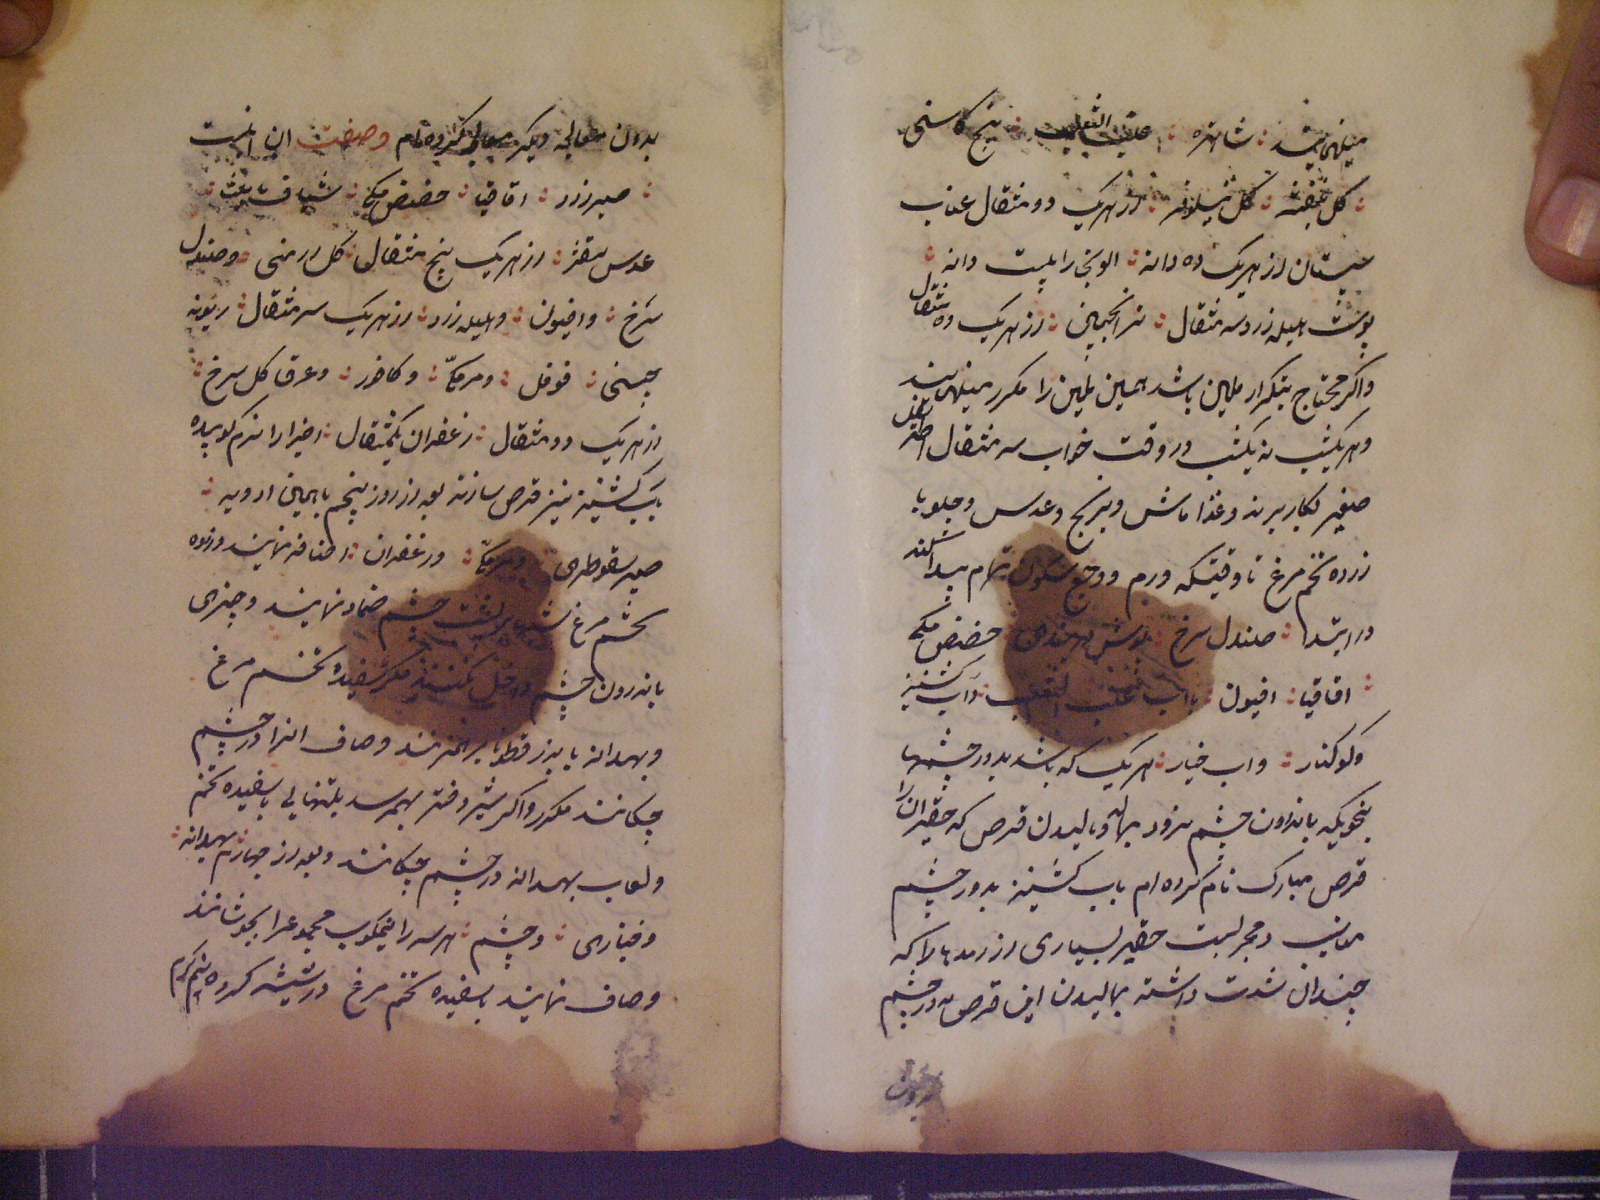 میدهند شاهتره عنب الثعلب بیخ کاسنی
گل بنفشه گل نیلوفر از هریک دو مثقال عناب
سپستان از هریک ده دانه الوبخارا بیست دانه
پوست هلیله زرد سه مثقال ترانجبین از هریک ده مثقال
و اکر محتاج بتکرار ملین باشد همین ملین را مکرر میدهند
و هر یکشب نه یکشب در وقت خواب سه مثقال اطریفل
صغیر بکار برند و غذا ماش و برنج و عدس و جلو با
زرده تخم مرغ تا وقتیکه ورم و وجع سکون تمام پیدا کند
در ابتدا صندل سرخ بوش دربندی حضض مکی
اقاقیا افیون با اب عنب الثعلب و اب کشنیز
و کوکنار و اب خیار هریک که باشد بدور چشمها
بنحویکه باندرون چشم نرود بمالند و مالیدن قرص که حقیر ان را
قرص مبارک نام کرده ام باب کشنیز بدور چشم
و مجربست حقیر بسیاری از رمدها را که
چندان شدت داشته بمالیدن این قرص بدور چشم
بدون
بدون معالجه دیکر کرده ام و صفت ان اینست
صبر زرد اقاقیا حضض مکی شیاف مامیثا
عدس مقشر از هریک پنج مثقال کل ارمنی و صندل
سرخ و افیون و هلیله زرد از هریک سه مثقال ریوند
چینی فوفل و مر مکی و کافور و عرق کل سرخ
از هریک دو مثقال زعفران یکمثقال اجزا را نرم کوبیده
باب کشنیز تر قرص سازند بعد از روز پنجم باهمین ادویه
صبر سقوطری و مر مکی و زعفران اضافه نمایند و زرده
تخم مرغ پشت چشم ضماد نمایند و چیزی
باندرون چشم داخل نکنند مکر سفیده تخم مرغ
و بهدانه با بزر قطونا بر همزنند و صاف انرا در چشم
چکانند مکرر و اکر شیر دختر بهم رسد بتنهایی یا سفیده تخم
و لعاب بهدانه در چشم چکانند و بعد از چهارم بهدانه
و خبازی و چشم هر سه را نیمکوب مجموعرا بجوشانند
و صاف نمایند با سفیده تخم مرغ در شیشه کرده نیم کرم